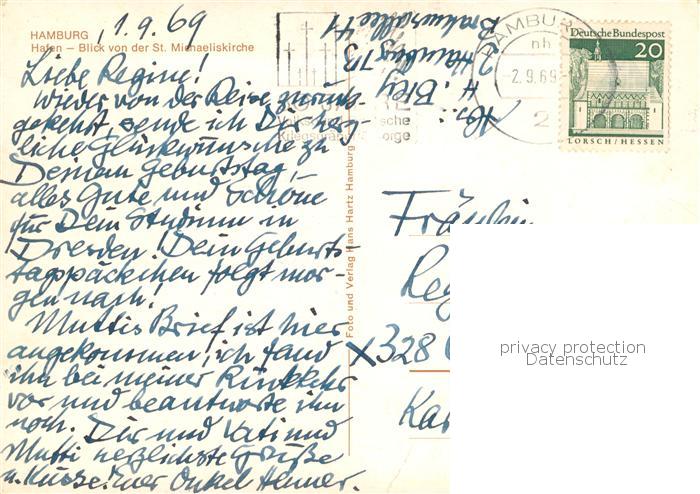 HAMBURG
Hafen – Blick von der St. Michaeliskirche
1.9.69
Liebe Regine!
Wieder von der Reise zurück-
gekehrt, sende ich Dir herz-
liche Glückwünsche zu
Deinem Geburtstag,
alles Gute und Schöne
für Dein Studium in
Dresden! Dein Geburts-
tagspäckchen folgt mor-
gen nach!
Muttis Brief ist hier
angekommen, ich fand
ihn bei meiner Rückkehr
vor und beantworte ihn
noch. Dir und Vati und
Mutti herzlichste Grüße
u. Küsse! Euer Onkel Henner.
Foto und Verlag Hans Hartz Hamburg
Abs.: H. Bley
2 Hamburg 13
Brahmsallee 41
HAMBURG
nh
-2.9.69-
2
Deutsche Bundespost
20
LORSCH/HESSEN
Fräulein
Reg
x328
Kar
privacy protection
Datenschutz